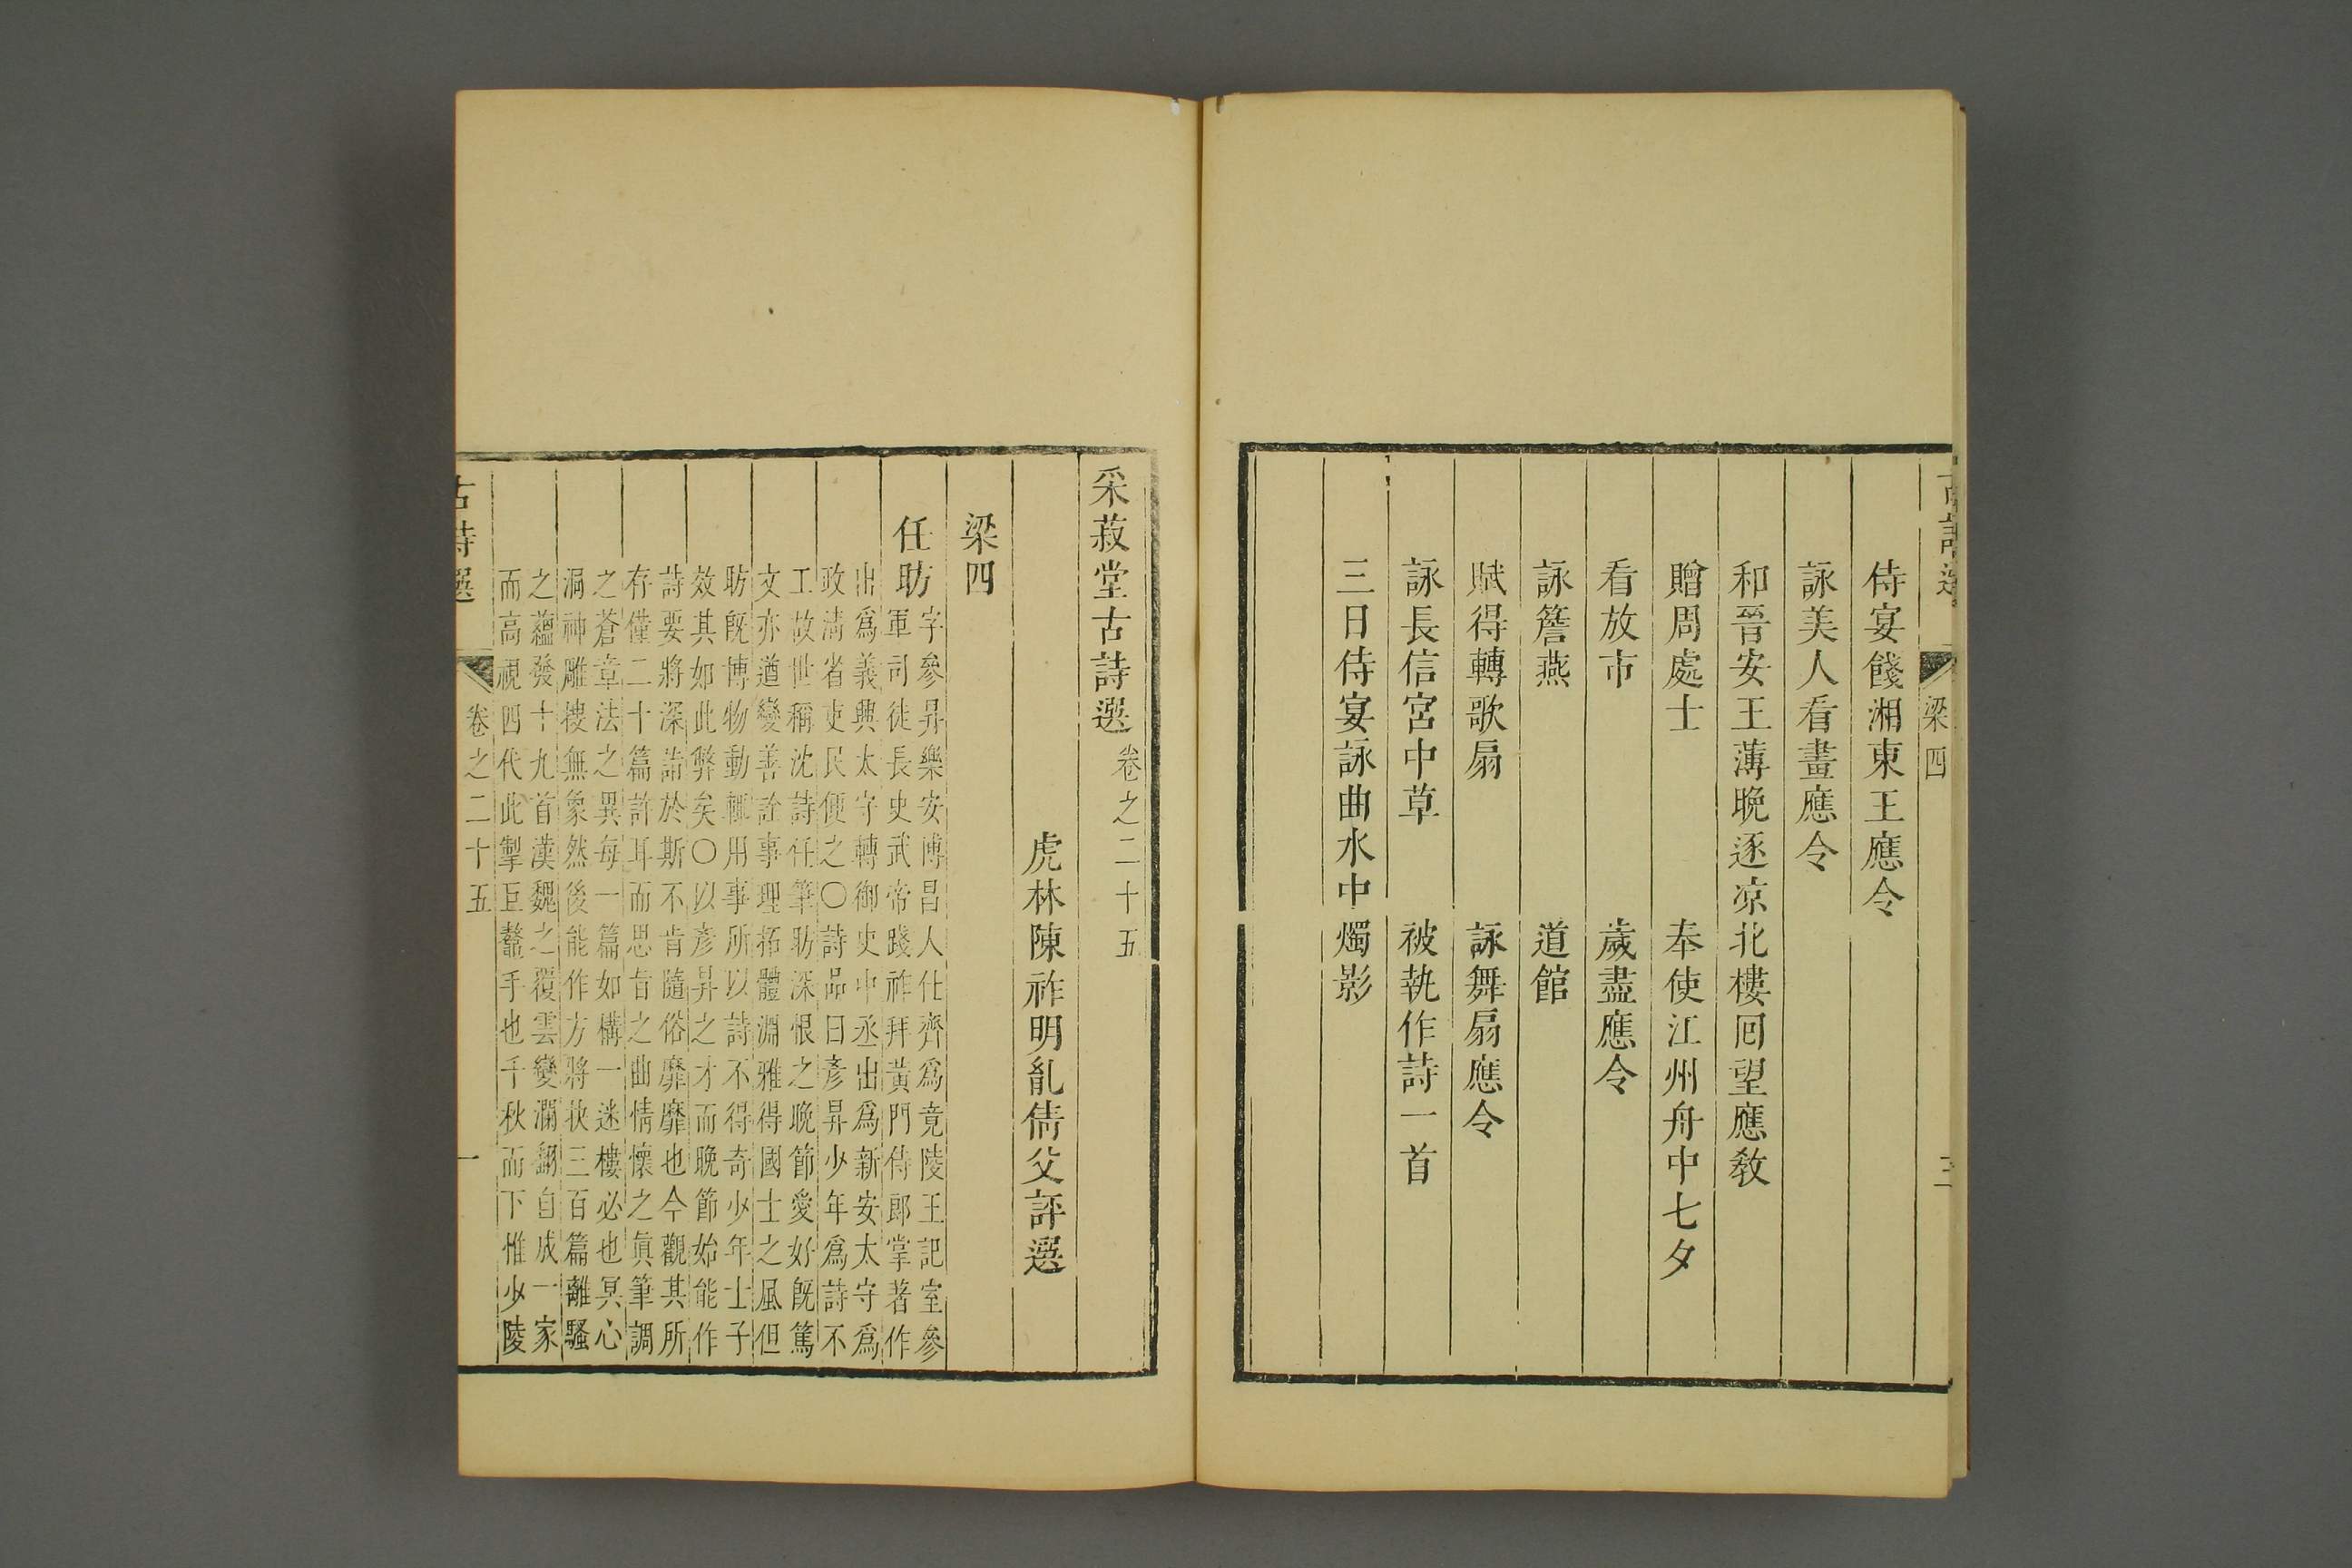 古詩選 梁四 三
侍宴餞湘東王應令
詠美人看畫應令
和晉安王薄晚逐凉北樓囘望應敎
贈周處士 奉使江州舟中七夕
看放市 歲盡應令
詠簷燕 道館
賦得轉歌扇 詠舞扇應令
詠長信宮中草 被執作詩一首
三日侍宴詠曲水中燭影
采菽堂古詩選 卷之二十五
虎林陳祚明胤倩父評選
梁四
任昉
字參昇樂安博昌人仕齊爲竟陵王記室參
軍司徒長史武帝踐祚拜黃門侍郎掌著作
出爲義興太守轉御史中丞出爲新安太守爲
政清省吏民便之〇詩品曰彥昇少年爲詩不
工故世稱沈詩任筆昉深恨之晚節愛好旣篤
文亦遒變善詮事理拓體淵雅得國士之風但
昉旣博物動輒用事所以詩不得奇少年士子
效其如此弊矣〇以彥昇之才而晚節始能作
詩要將深詣於斯不肯隨俗靡靡也今觀其所
存僅二十篇許耳而思旨之曲情懷之眞筆調
之蒼章法之異每一篇如構一迷樓必也冥心
洞神雕樓無象然後能作方將抉三百篇離騷
之蘊發十九首漢魏之覆雲變瀾翻自成一家
而高視四代此掣巨鼇手也千秋而下惟少陵
古詩選 卷之二十五 一